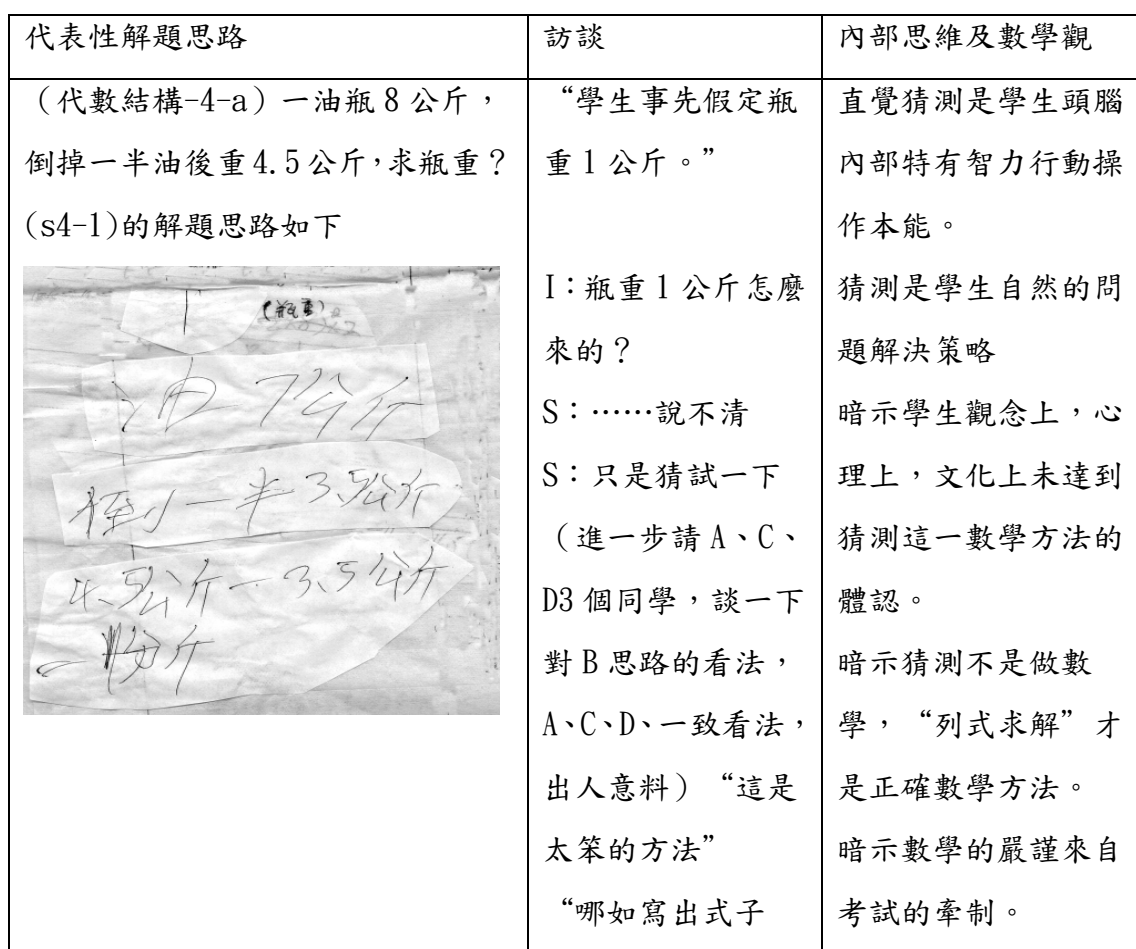 代表性解題思路
訪談
內部思維及數學觀
（代數結構-4-a）一油瓶 8 公斤，
倒掉一半油後重 4.5 公斤，求瓶重？
(s4-1)的解題思路如下
1
(瓶重)
油 7公斤
倒一半 3.5公斤
4.5公斤－3.5公斤
=1公斤
“學生事先假定瓶
重 1 公斤。”
I：瓶重 1 公斤怎麼
來的？
S：……說不清
S：只是猜試一下
（進一步請 A、C、
D3 個同學，談一下
對 B 思路的看法，
A、C、D、一致看法，
出人意料）“這是
太笨的方法”
“哪如寫出式子
直覺猜測是學生頭腦
內部特有智力行動操
作本能。
猜測是學生自然的問
題解決策略
暗示學生觀念上，心
理上，文化上未達到
猜測這一數學方法的
體認。
暗示猜測不是做數
學，“列式求解”才
是正確數學方法。
暗示數學的嚴謹來自
考試的牽制。